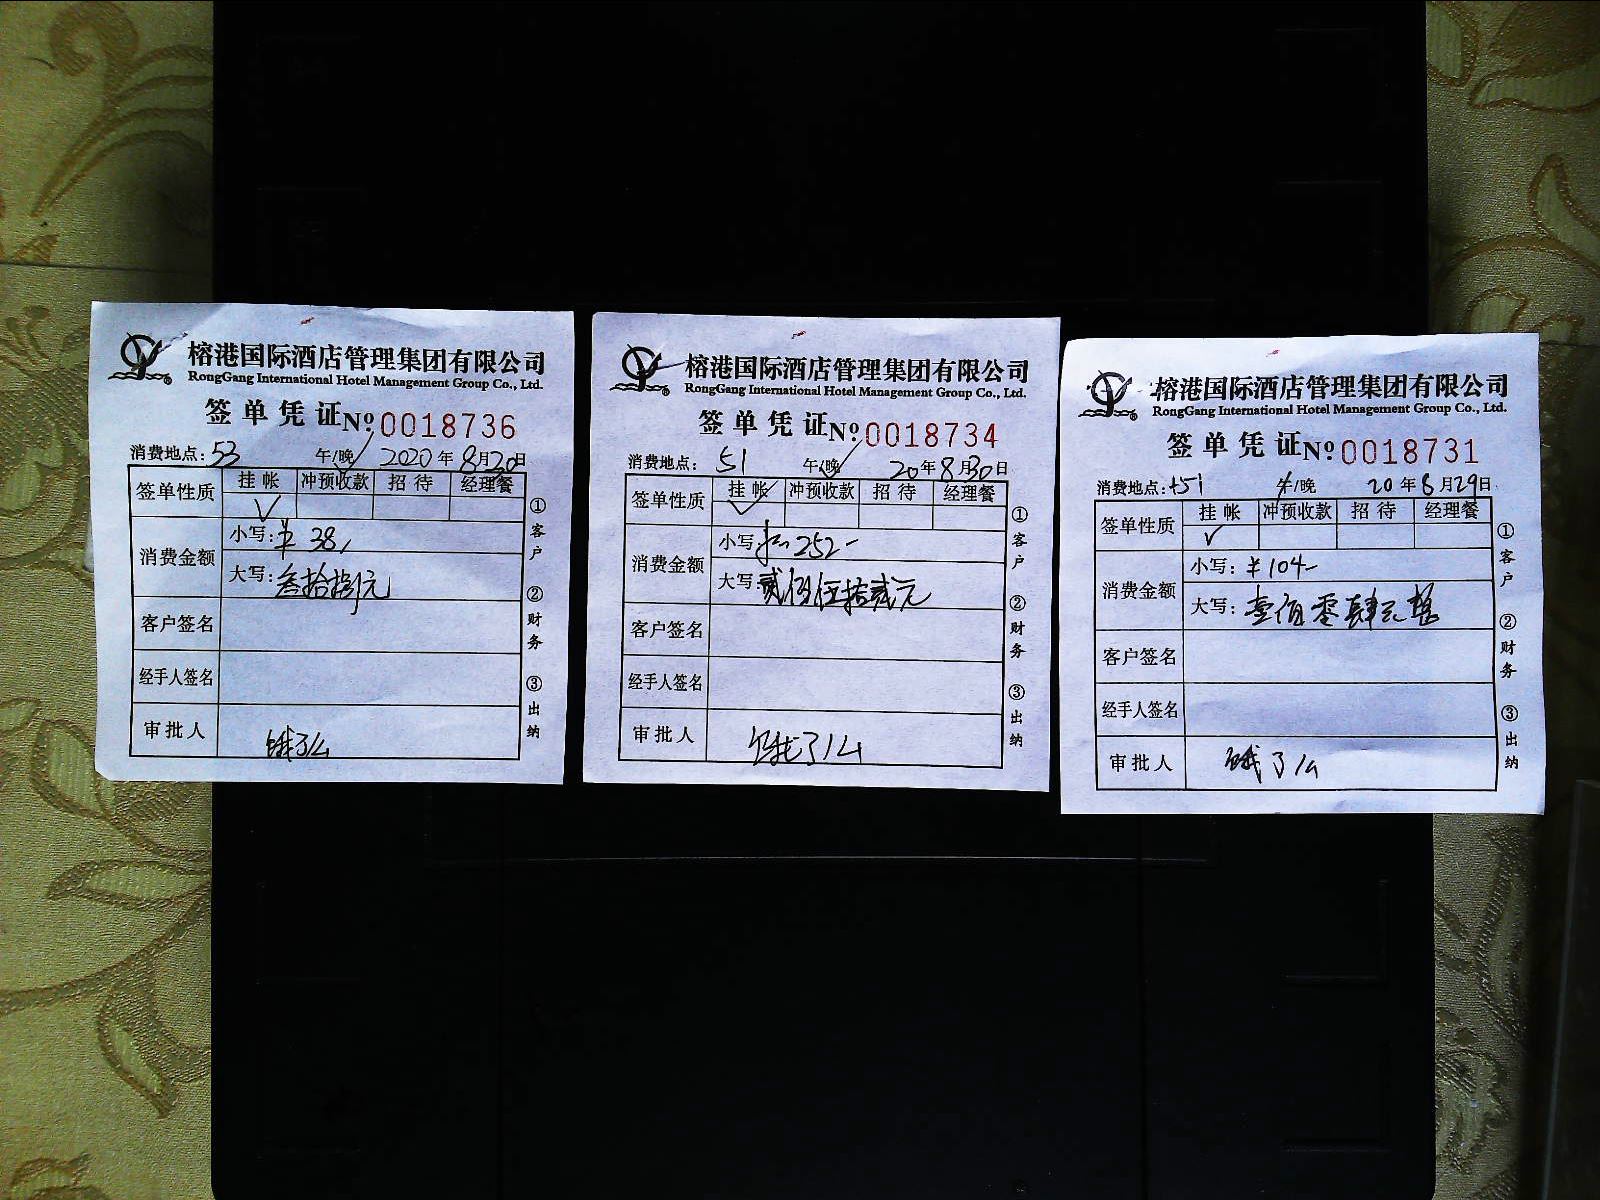 榕港国际酒店管理集团有限公司
RongGang International Hotel Management Group Co., Ltd.
签单凭证 No 0018736
消费地点: 53 午/晚 2020年8月30日
签单性质 挂帐 冲预收款 招待 经理餐
消费金额 小写: ¥38
大写: 叁拾捌元
客户签名
经手人签名
审批人 饿了么
①客户 ②财务 ③出纳
榕港国际酒店管理集团有限公司
RongGang International Hotel Management Group Co., Ltd.
签单凭证 No 0018734
消费地点: 51 午/晚 20年8月30日
签单性质 挂帐 冲预收款 招待 经理餐
消费金额 小写: 252-
大写: 贰佰伍拾贰元
客户签名
经手人签名
审批人 饿了么
①客户 ②财务 ③出纳
榕港国际酒店管理集团有限公司
RongGang International Hotel Management Group Co., Ltd.
签单凭证 No 0018731
消费地点: 51 午/晚 20年8月29日
签单性质 挂帐 冲预收款 招待 经理餐
消费金额 小写: ¥104-
大写: 壹佰零肆元整
客户签名
经手人签名
审批人 饿了么
①客户 ②财务 ③出纳